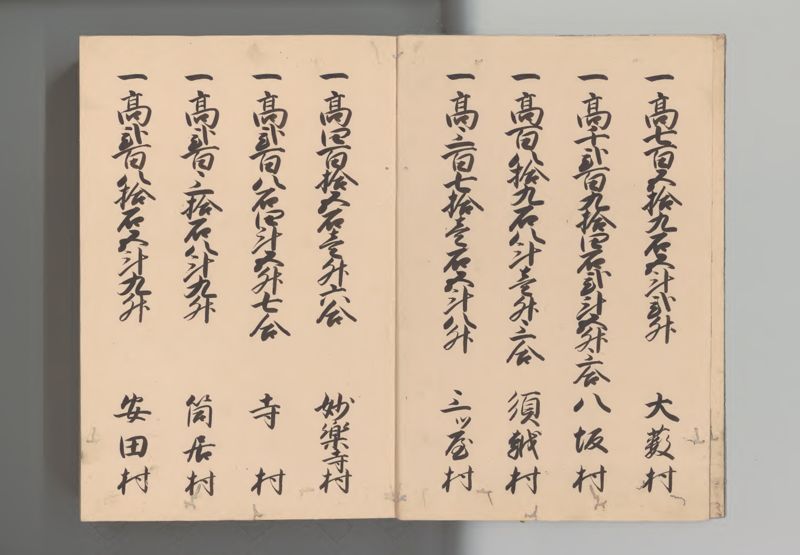 一高七百五拾九石五斗弐升 大藪村
一高千弐百九拾四石弐斗五升三合 八坂村
一高百八拾九石八斗壱升三合 須越村
一高三百七拾壱石五斗八升 三ッ屋村
一高四百拾五石壱升六合 妙楽寺村
一高弐百八石四斗五升七合 寺村
一高弐百三拾石八斗九升 筒居村
一高弐百八拾石五斗九升 安田村